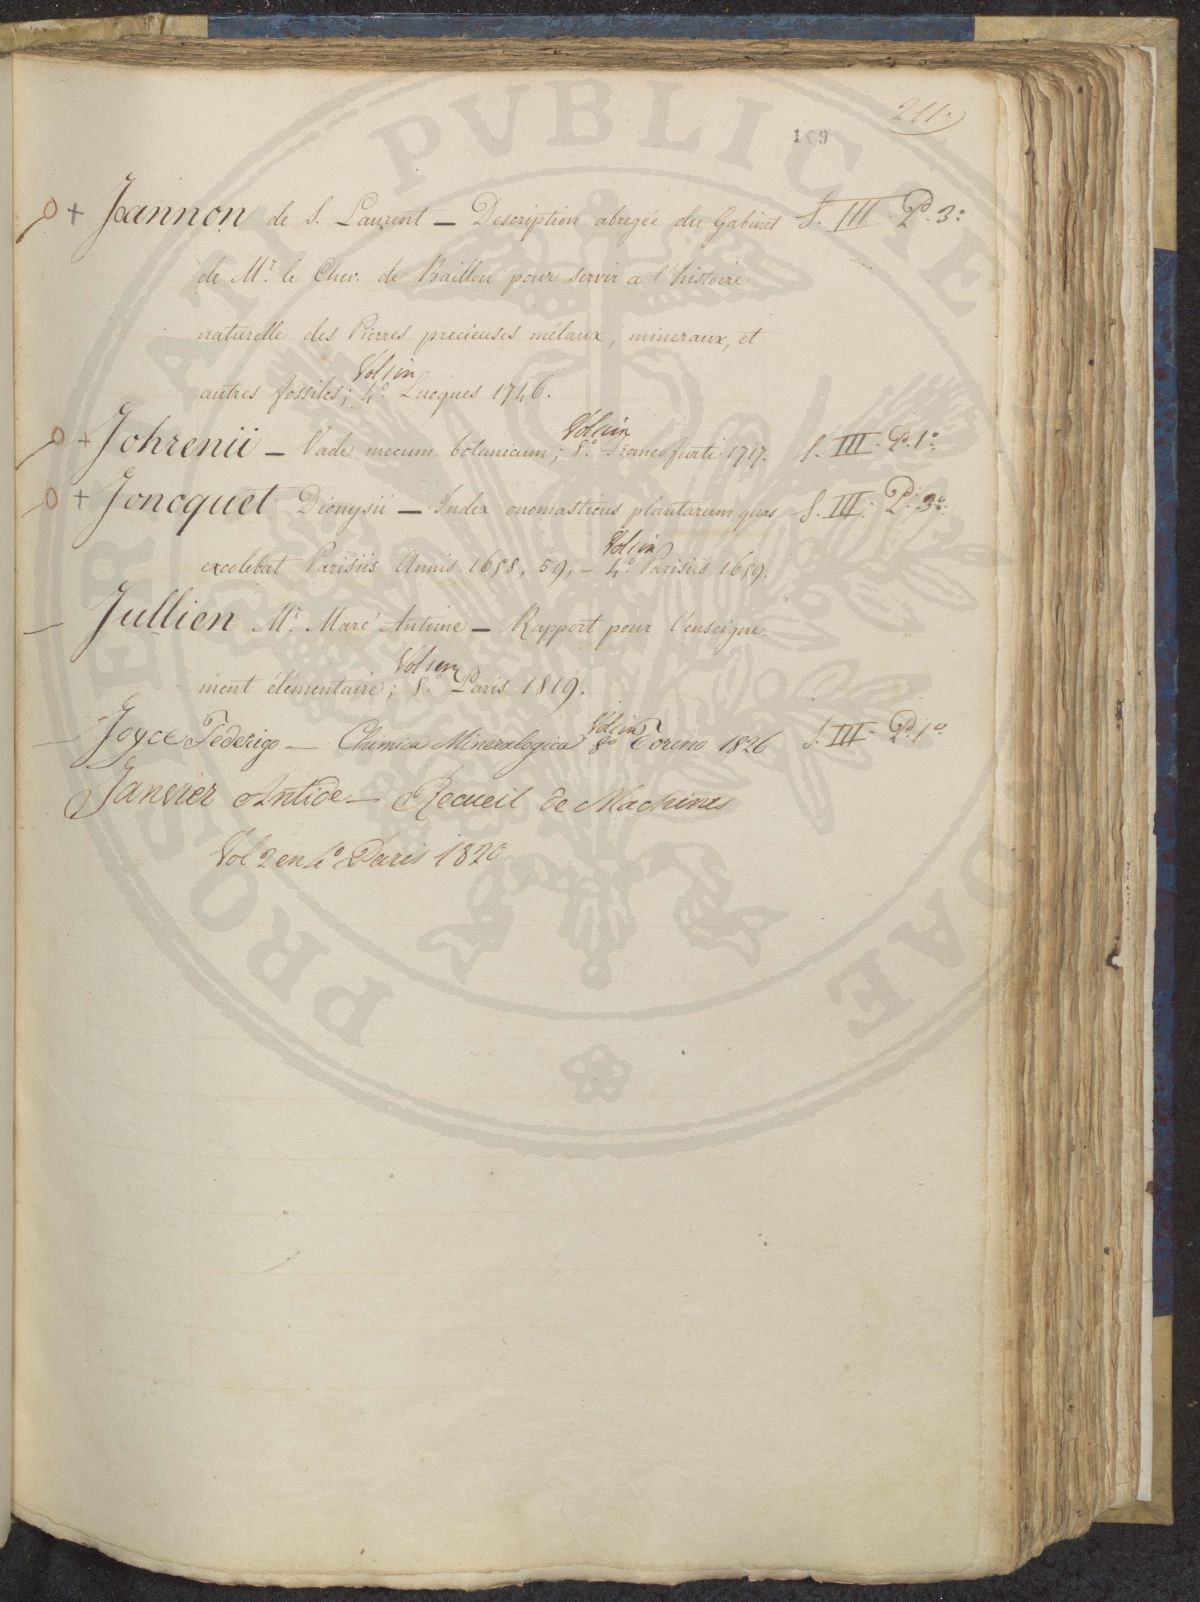 211.
109
Joannon de S. Laurent — Description abregée du Gabinet S. III. P. 3:
de Mr. le Chev. de Baillou pour servir a l'histoire
naturelle des Pierres precieuses métaux, mineraux, et
autres fossiles; Vol 1 in 4.° Lucques 1746.
+ Johrenii — Vade mecum botanicum; Vol 1 in 8.° Francofurti 1717. S. III. P. 1°
+ Joncquet Dionysii — Index onomasticus plantarum quas S. III. P. 3°:
excolebat Parisiis Annis 1658, 59; — Vol 1 in 4.° Parisiis 1659.
Jullien Mr. Marc Antoine — Rapport pour l'enseigne
ment élémentaire; Vol 1 en 8.° Paris 1819.
Joyce Federigo — Chimica Mineralogica Vol in 8° Torino 1826 S. III. P. 1°
Janvier Antide — Recueil de Machines
Vol 2 en 4° Paris 1820
PROSPERITATI PVBLICAE